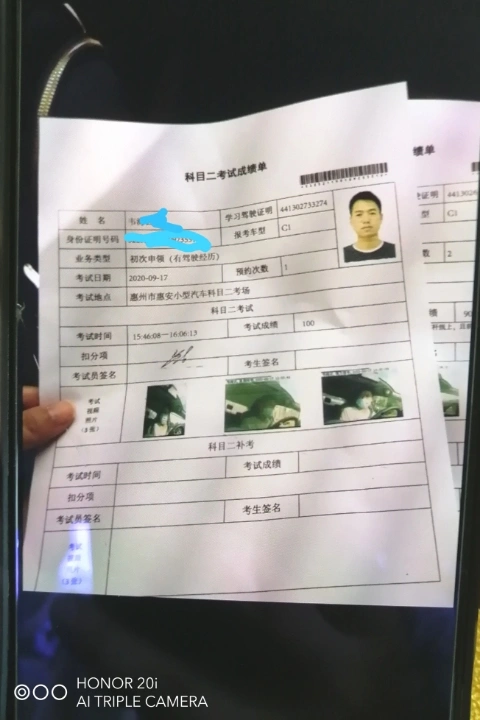 科目二考试成绩单
姓 名
学习驾驶证明 441302733274
身份证明号码
报考车型 C1
业务类型 初次申领（有驾驶经历）
考试日期 2020-09-17 预约次数 1
考试地点 惠州市惠安小型汽车科目二考场
科目二考试
考试时间 15:46:08—16:06:13 考试成绩 100
扣分项
考试员签名 考生签名
考试
视频
照片
（3张）
科目二补考
考试时间 考试成绩
扣分项
考试员签名 考生签名
考试
照片
（3张）
绩单
证明 441302
型 C1
数 2
绩 90
HONOR 20i
AI TRIPLE CAMERA